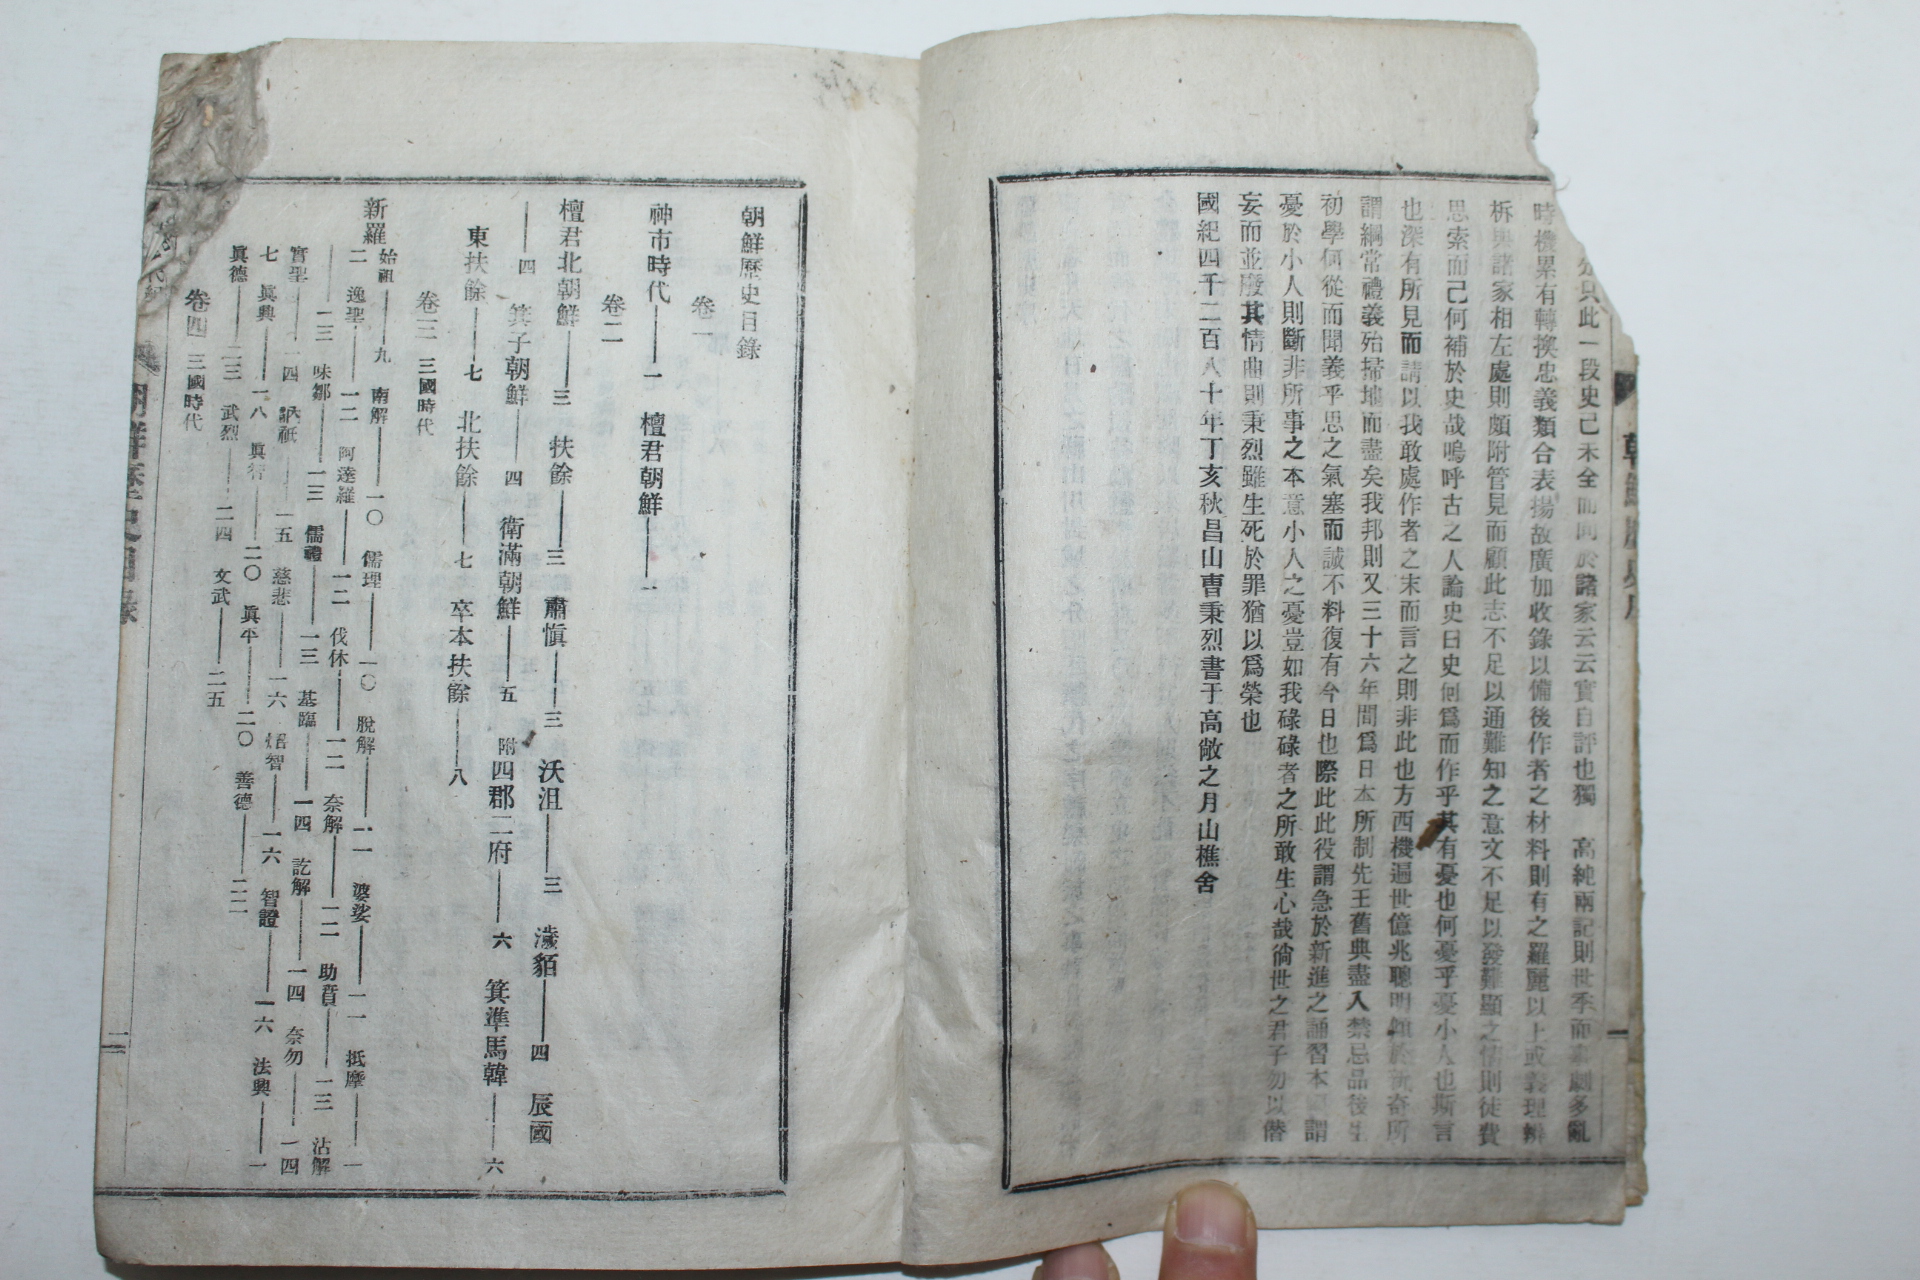 分只此一段史己未全而同於諸家云云實自評也獨　高純兩記則世季而劇多亂
時機累有轉換忠義類合表揚故廣加收錄以備後作者之材料則有之羅麗以上或義理辨
析與諸家相左處則頗附管見而顧此志不足以通難知之意文不足以發難顯之情則徒費
思索而己何補於史哉嗚呼古之人論史曰史何爲而作乎其有憂也何憂乎憂小人也斯言
也深有所見而請以我敢處作者之末而言之則非此也方西機遍世億兆聰明傾於新奇所
謂綱常禮義殆掃地而盡矣我邦則又三十六年間爲日本所制先王舊典盡入禁忌品後生
初學何從而聞義乎思之氣塞而誠不料復有今日也際此此役謂急於新進之誦習本謂
憂於小人則斷非所事之本意小人之憂豈如我碌碌者之所敢生心哉倘世之君子勿以僭
妄而並廢其情曲則秉烈雖生死於罪猶以爲榮也
國紀四千二百八十年丁亥秋昌山曺秉烈書于高敞之月山樵舍
朝鮮歷史目錄
卷一
神市時代——一　檀君朝鮮——一
卷二
檀君北朝鮮——三　扶餘——三　肅愼——三　沃沮——三　濊貊——四　辰國
——四　箕子朝鮮——四　衛滿朝鮮——五　附四郡二府——六　箕準馬韓——六
東扶餘——七　北扶餘——七　卒本扶餘——八
卷三　三國時代
新羅　始祖——九　南解——一〇　儒理——一〇　脫解——一一　婆娑——一一　抵摩——一
二　逸聖——一二　阿達羅——一二　伐休——一二　奈解——一二　助賁——一三　沾解
——一三　味鄒——一三　儒禮——一三　基臨——一四　訖解——一四　奈勿——一四
實聖——一四　訥祇——一五　慈悲——一六　炤智——一六　智證——一六　法興——一
七　眞興——一八　眞智——二〇　眞平——二〇　善德——二二
眞德——二三　武烈——二四　文武——二五
卷四　三國時代
朝鮮歷史目錄
一